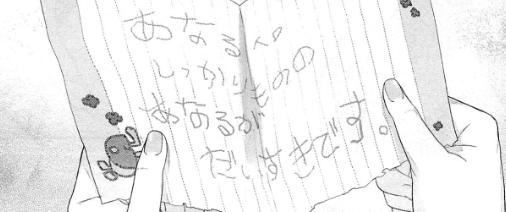 あなるへ。
しっかりものの
あなるが
だいすきです。